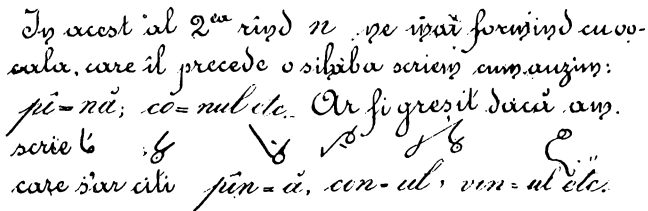 In acest al 2ea rînd n ne mai formînd cu vo-
cala, care îl precede o silaba scriem cum auzim:
pî=nă; co=nul etc. Ar fi greșit dacă am
scrie
care s'ar citi pîn=ă, con=ul, vin=ul etc.